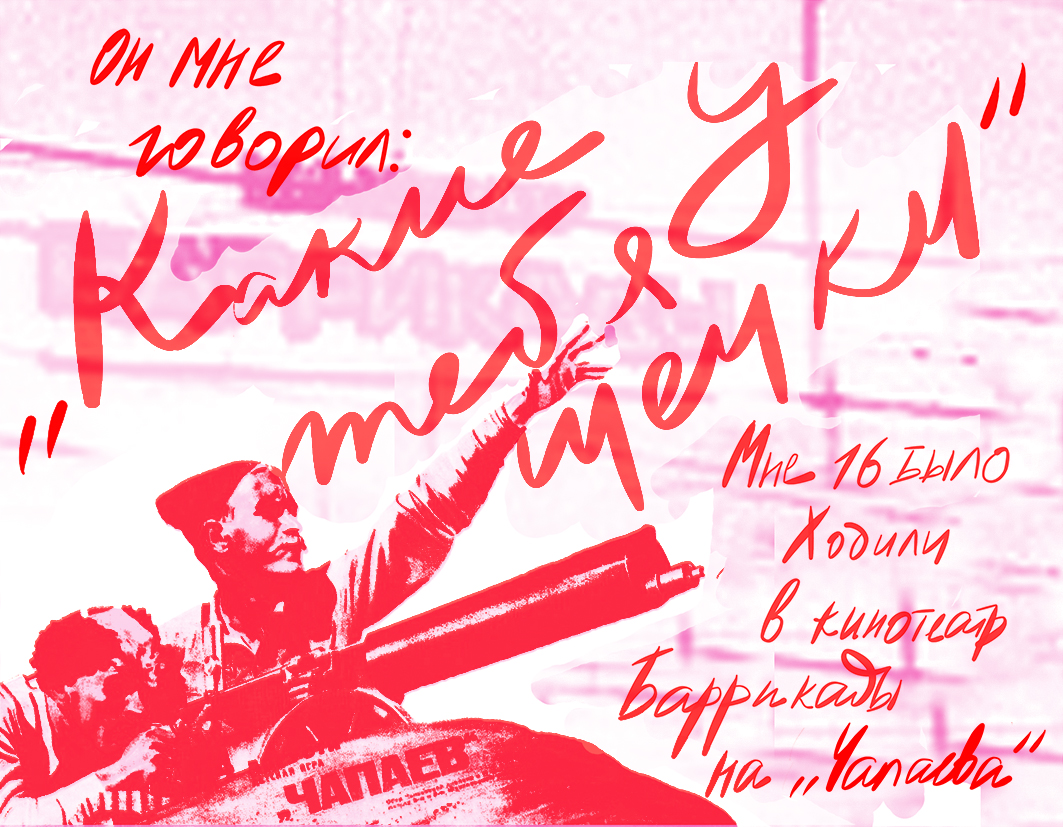 Он мне
говорил:
„Какие у
тебя
щечки"
Мне 16 было
Ходили
в кинотеатр
Баррикады
на „Чапаева“
ЧАПАЕВ